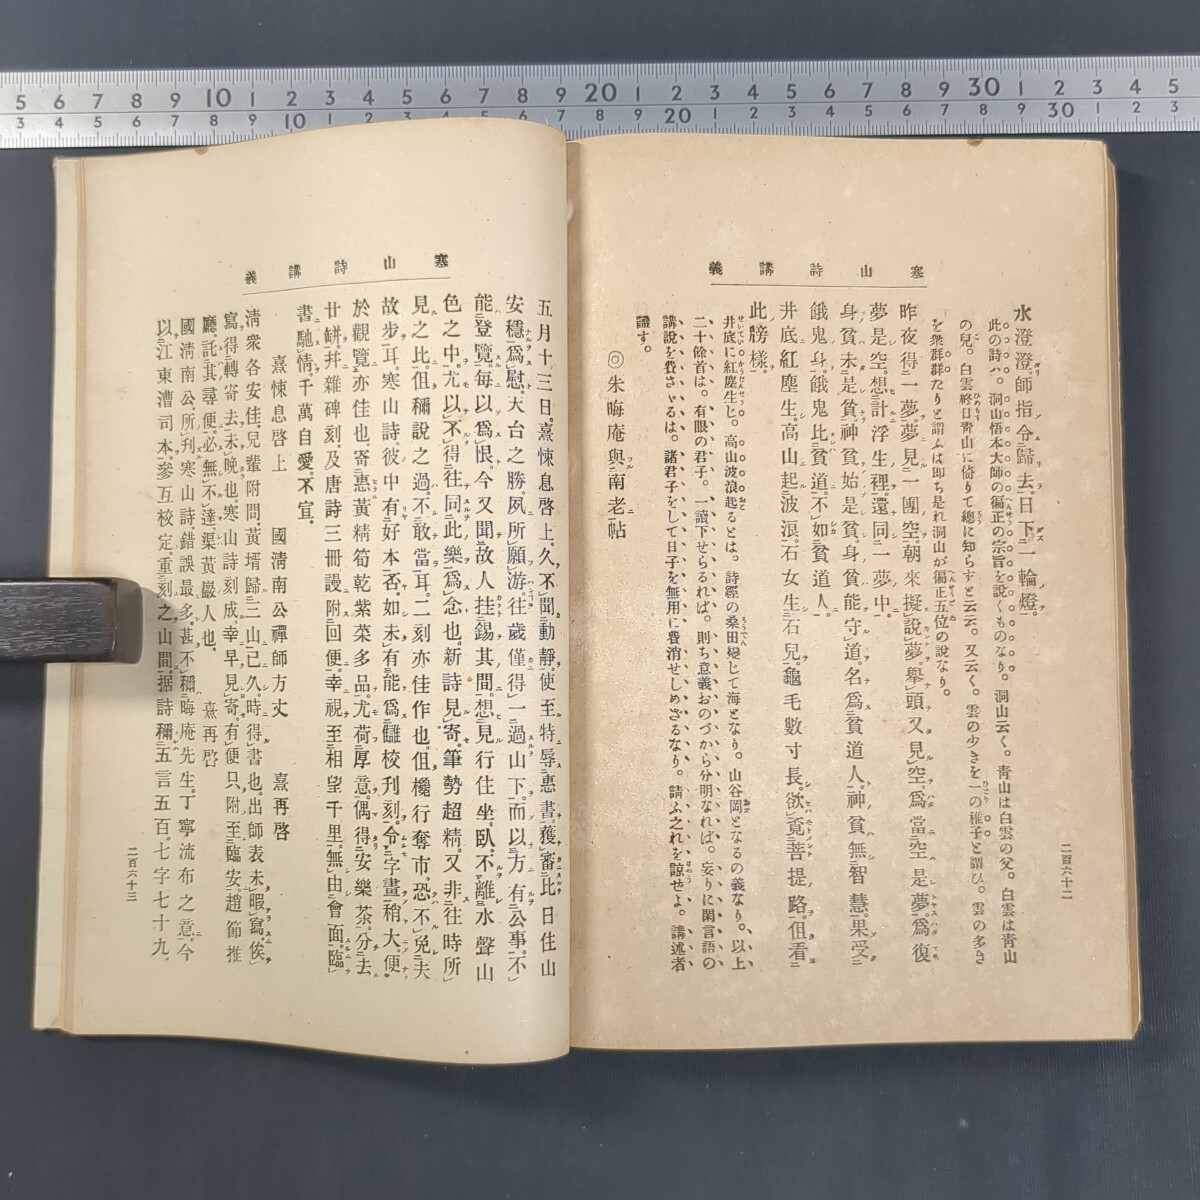 寒山詩講義
二百六十二
水澄澄。師指令歸去。日下一輪燈。
此の詩ハ。洞山悟本大師の偏正の宗旨を說くものなり。洞山云く。靑山は白雲の父。白雲は靑山
の兒。白雲終日靑山に倚りて總に知らずと云云。又云く。雲の少きを一の稚子と謂ひ。雲の多き
を衆群群たりと謂ふは卽ち是れ洞山が偏正五位の說なり。
昨夜得一夢。夢見一團空。朝來擬說夢。擧頭又見空。爲當空是夢。爲復
夢是空。想計浮生裡。還同一夢中。
身貧未是貧。神貧始是貧。身貧能守道。名爲貧道人。神貧無智慧。果受
餓鬼身。餓鬼比貧道。不如貧道人。
井底紅塵生。高山起波浪。石女生石兒。龜毛數寸長。欲覓菩提路。但看
此牓樣。
井底に紅塵生じ。高山波浪起るとは。詩經の桑田變じて海となり。山谷岡となるの義なり。以上
二十餘首は。有眼の君子。一讀下せらるれば。則ち意義おのづから分明なれば。妄りに閑言語の
講說を費さゞるは。諸君子をして日子を無用に費消せしめざるなり。請ふ之れを諒せよ。講述者
識す。
◎朱晦庵與南老帖
寒山詩講義
二百六十三
五月十三日。熹悚息啓上。久不聞動靜。使至特辱惠書。獲審比日住山
安穩。爲慰。天台之勝。夙所願游。往歲僅得一過山下。而以方有公事。不
能登覽。每以爲恨。今又聞故人挂錫其間。想見行住坐臥。不離水聲山
色之中。尤以不得往同此樂爲念也。新詩見寄。筆勢超精。又非往時所
見之比。但稱說之過。不敢當耳。二刻亦佳作也。但攙行奪市。恐不免夫
故步耳。寒山詩。彼中有好本否。如未有能爲讎校刊刻。令字畫稍大。便
於觀覽。亦佳也。寄惠黃精筍乾紫菜多品。尤荷厚意。偶得安樂茶。分去
廿缾。幷雜碑刻。及唐詩三冊。謾附回便。幸視至相望千里。無由會面。臨
書馳情。千萬自愛。不宣。
熹悚息啓上　國淸南公禪師方丈　熹再啓
淸衆各安佳。兒輩附問。黃壻歸三山已久。時得書也。出師表未暇寫。俟
寫得轉寄去。未晚也。寒山詩刻成。幸早見寄。有便只附至臨安。趙節推
廳。託其尋便。必無不達。渠黃巖人也。　熹再啓
國淸南公。所刋寒山詩。錯誤最多。甚不稱晦庵先生。丁寧流布之意。今
以江東漕司本。參互校定。重刻之山間。据詩稱。五言五百。七字七十九